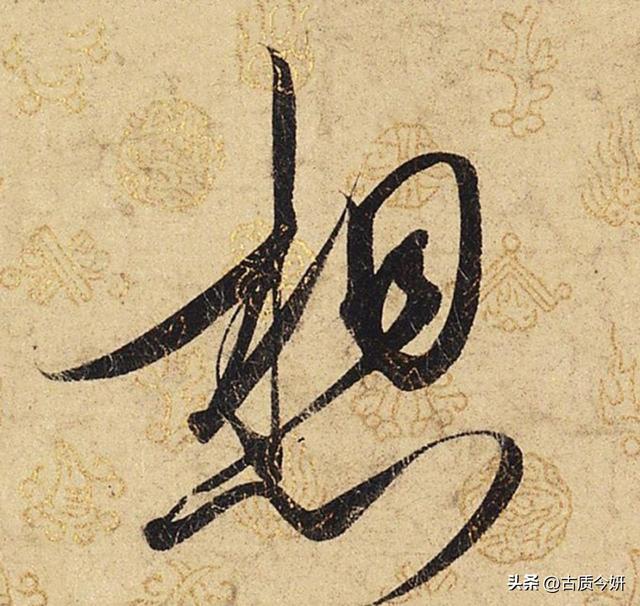 想
头条 @古质今妍